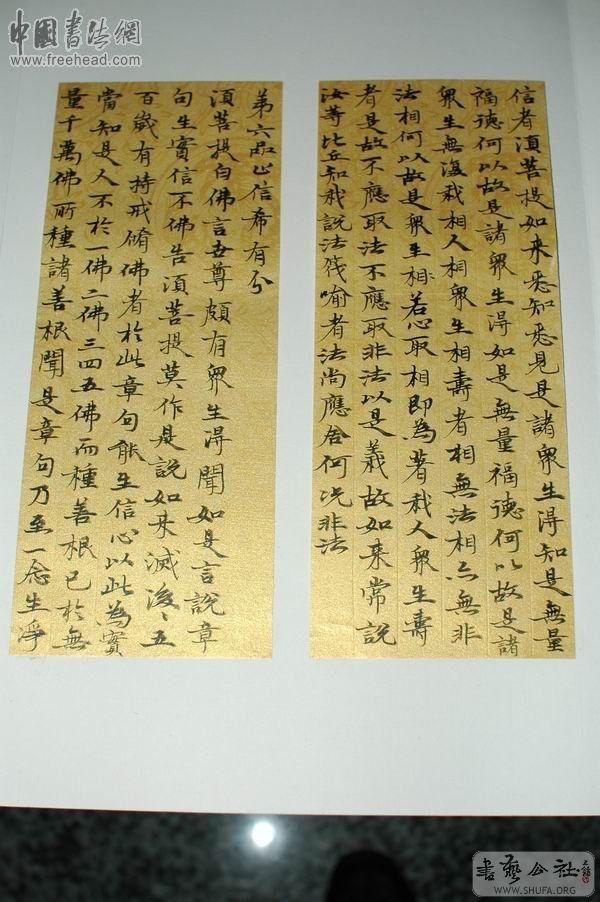 中国书法網
www.freehead.com
第六品正信希有分
須菩提白佛言世尊頗有眾生得聞如是言說章
句生實信不佛告須菩提莫作是說如来滅後々五
百歲有持戒脩佛者於此章句能生信心以此為實
當知是人不於一佛二佛三四五佛而種善根已於無
量千萬佛所種諸善根聞是章句乃至一念生淨
信者須菩提如来悉知悉見是諸眾生得知是無量
福德何以故是諸眾生得如是無量福德何以故是諸
眾生無復我相人相眾生相壽者相無法相亦無非
法相何以故是眾生相若心取相即為著我人眾生壽
者是故不應取法不應取非法以是義故如来常說
汝等比丘知我說法筏喻者法尚應舍何况非法
書藝公社
WWW.SHUFA.ORG